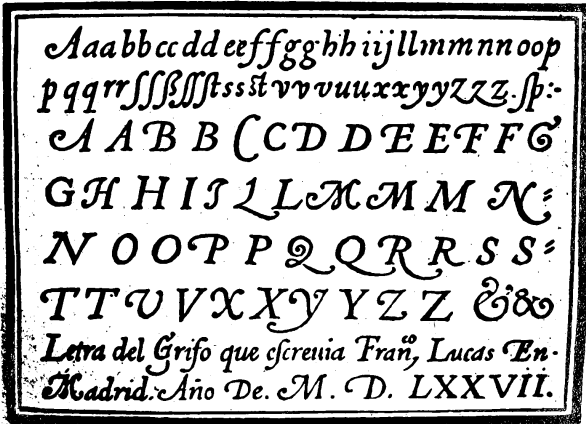 Aaabbccddeeffgghhiijllmmnnoop
pqqrrſſſßſſſtstsstvvvuuxxyyzzz.ſp:-
AABBCCDDDEEFFG
GHHIIJLLMMMN:
NOOPPQQRRSS:
TTVVXXYYZZ&&
Letra del Grifo que eſcreuia Franᵒ, Lucas En-
Madrid. Año De. M. D. LXXVII.